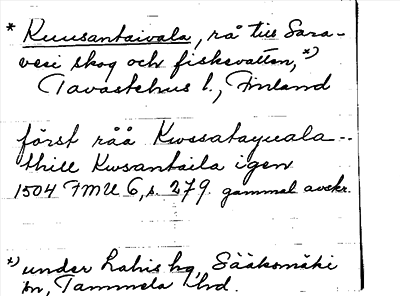 * Kuusantaivala, rå till Sara-
vesi skog och fiskevatten, *)
Tavastehus l., Finland
först råå Kwssatayuala--
thill Kwsantaila igen
1504 FMU 6, s. 279. gammal avskr.
*) under Lahis by, Sääksmäki
sn, Tammela hd.